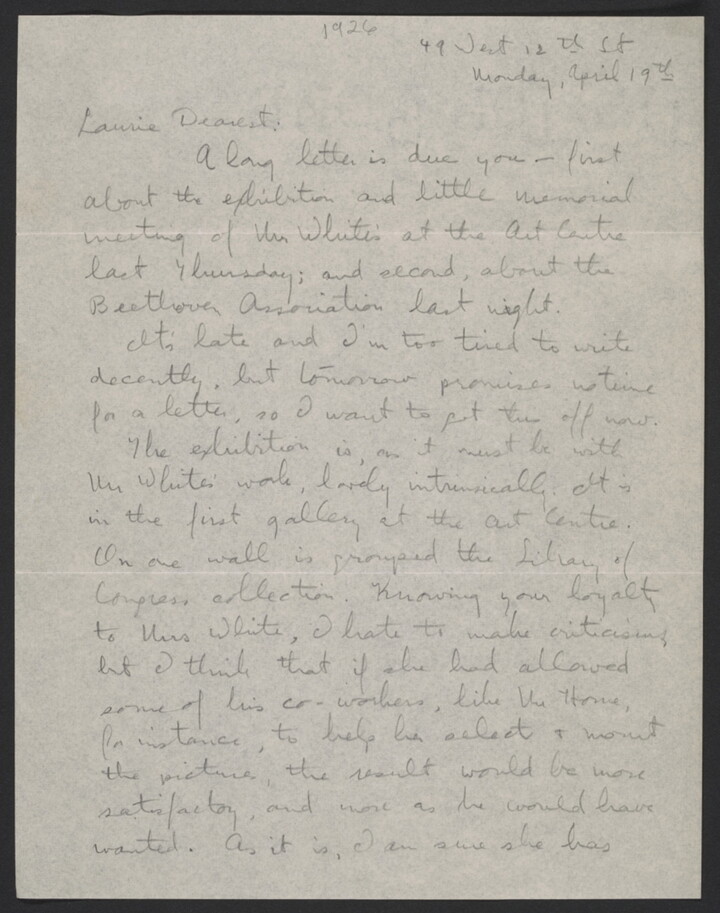 1926
49 West 12th St
Monday, April 19th
Laurie Dearest:
A long letter is due you – first
about the exhibition and little memorial
meeting of Mr White's at the Art Centre
last Thursday; and second, about the
Beethoven Association last night.
It's late and I'm too tired to write
decently, but tomorrow promises no time
for a letter, so I want to get this off now.
The exhibition is, as it must be with
Mr White's work, lovely intrinsically. It is
in the first gallery at the Art Centre.
On one wall is grouped the Library of
Congress collection. Knowing your loyalty
to Mrs White, I hate to make criticisms,
but I think that if she had allowed
some of his co-workers, like Mr Horne,
for instance, to help her select & mount
the pictures, the result would be more
satisfactory, and more as he would have
wanted. As it is, I am sure she has